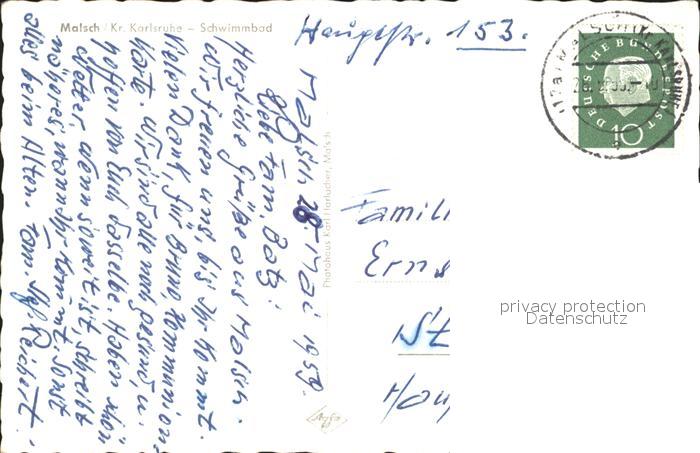 Malsch / Kr. Karlsruhe – Schwimmbad
Hauptstr. 153.
Malsch 28. Mai 1959.
Liebe Fam. Botz!
Herzliche Grüße aus Malsch.
Wir freuen uns, bis Ihr kommt.
Vielen Dank für Bruno, Kommunion
karte. Wir sind alle noch gesund, u.
hoffen von Euch dasselbe. Haben schön
Wetter, wenn soweit ist, schreibt
näheres, wann Ihr kommt. Sonst
alles beim Alten. Fam. Reichert.
Photohaus Karl Harlacher, Malsch
Agfa
DEUTSCHE BUNDESPOST
10
Famili
Erns
St
Hau
privacy protection
Datenschutz